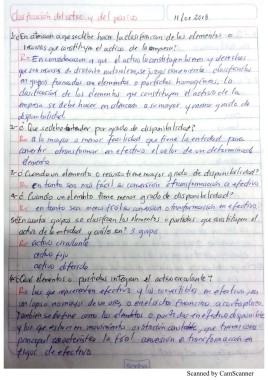 Clasificación del activo y del pasivo 11/02/2018
1-¿En atención a que se debe hacer la clasificación de los elementos o
recursos que constituyen el activo de la empresa?
R= En consideración a que el activo lo constituyen bienes y derechos
que son recursos de distinta naturaleza se juzga conveniente clasificarlos
en grupos formados con elementos o partidas homogéneas, la
clasificación de los elementos que constituyen el activo de la
empresa se debe hacer en atención a su mayor y menor grado de
disponibilidad.
2-¿Que se debe entender por grado de disponibilidad?
R= a la mayor o menor facilidad que tiene la entidad para
convertir o transformar en efectivo el valor de un determinado
elemento
3-¿Cuando un elemento o recurso tiene mayor grado de disponibilidad?
R= en tanto sea más fácil su conversión o transformación en efectivo
4-¿Cuando un elemento tiene menor grado de disponibilidad?
R= en tanto sea menos fácil su conversión o transformación en efectivo
5-En cuantos grupos se clasifican los elementos o partidas que constituyen el
activo de la entidad, y cuáles son? 3 grupos
R= activo circulante
activo fijo
activo diferido
6-¿Qué elementos o partidas integran el activo circulante?
R= Los que representan efectivo y los convertibles en efectivo, en
un lapso no mayor de un año, o en el ciclo financiero a corto plazo.
También se define como los elementos o partidas en efectivo disponible
y los que están en movimiento o rotación constante, que tienen como
principal característica la fácil conversión o transformación en
flujos de efectivo
Scanned by CamScanner